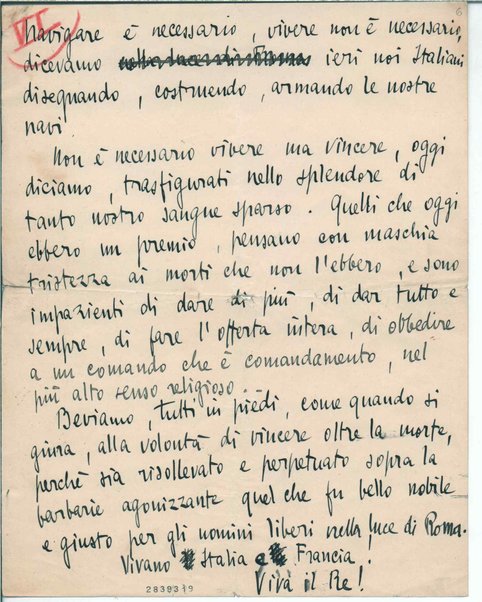 VI
6
Navigare è necessario, vivere non è necessario,
dicevamo nella luce di Roma ieri noi Italiani
disegnando, costruendo, armando le nostre
navi.
Non è necessario vivere ma vincere, oggi
diciamo, trasfigurati nello splendore di
tanto nostro sangue sparso. Quelli che oggi
ebbero un premio, pensano con maschia
tristezza ai morti che non l'ebbero, e sono
impazienti di dare di più, di dar tutto e
sempre, di fare l'offerta intera, di obbedire
a un comando che è comandamento, nel
più alto senso religioso.
Beviamo, tutti in piedi, come quando si
giura, alla volontà di vincere oltre la morte,
perché sia risollevato e perpetuato sopra la
barbarie agonizzante quel che fu bello nobile
e giusto per gli uomini liberi nella luce di Roma.
Vivano Italia e Francia!
Viva il Re!